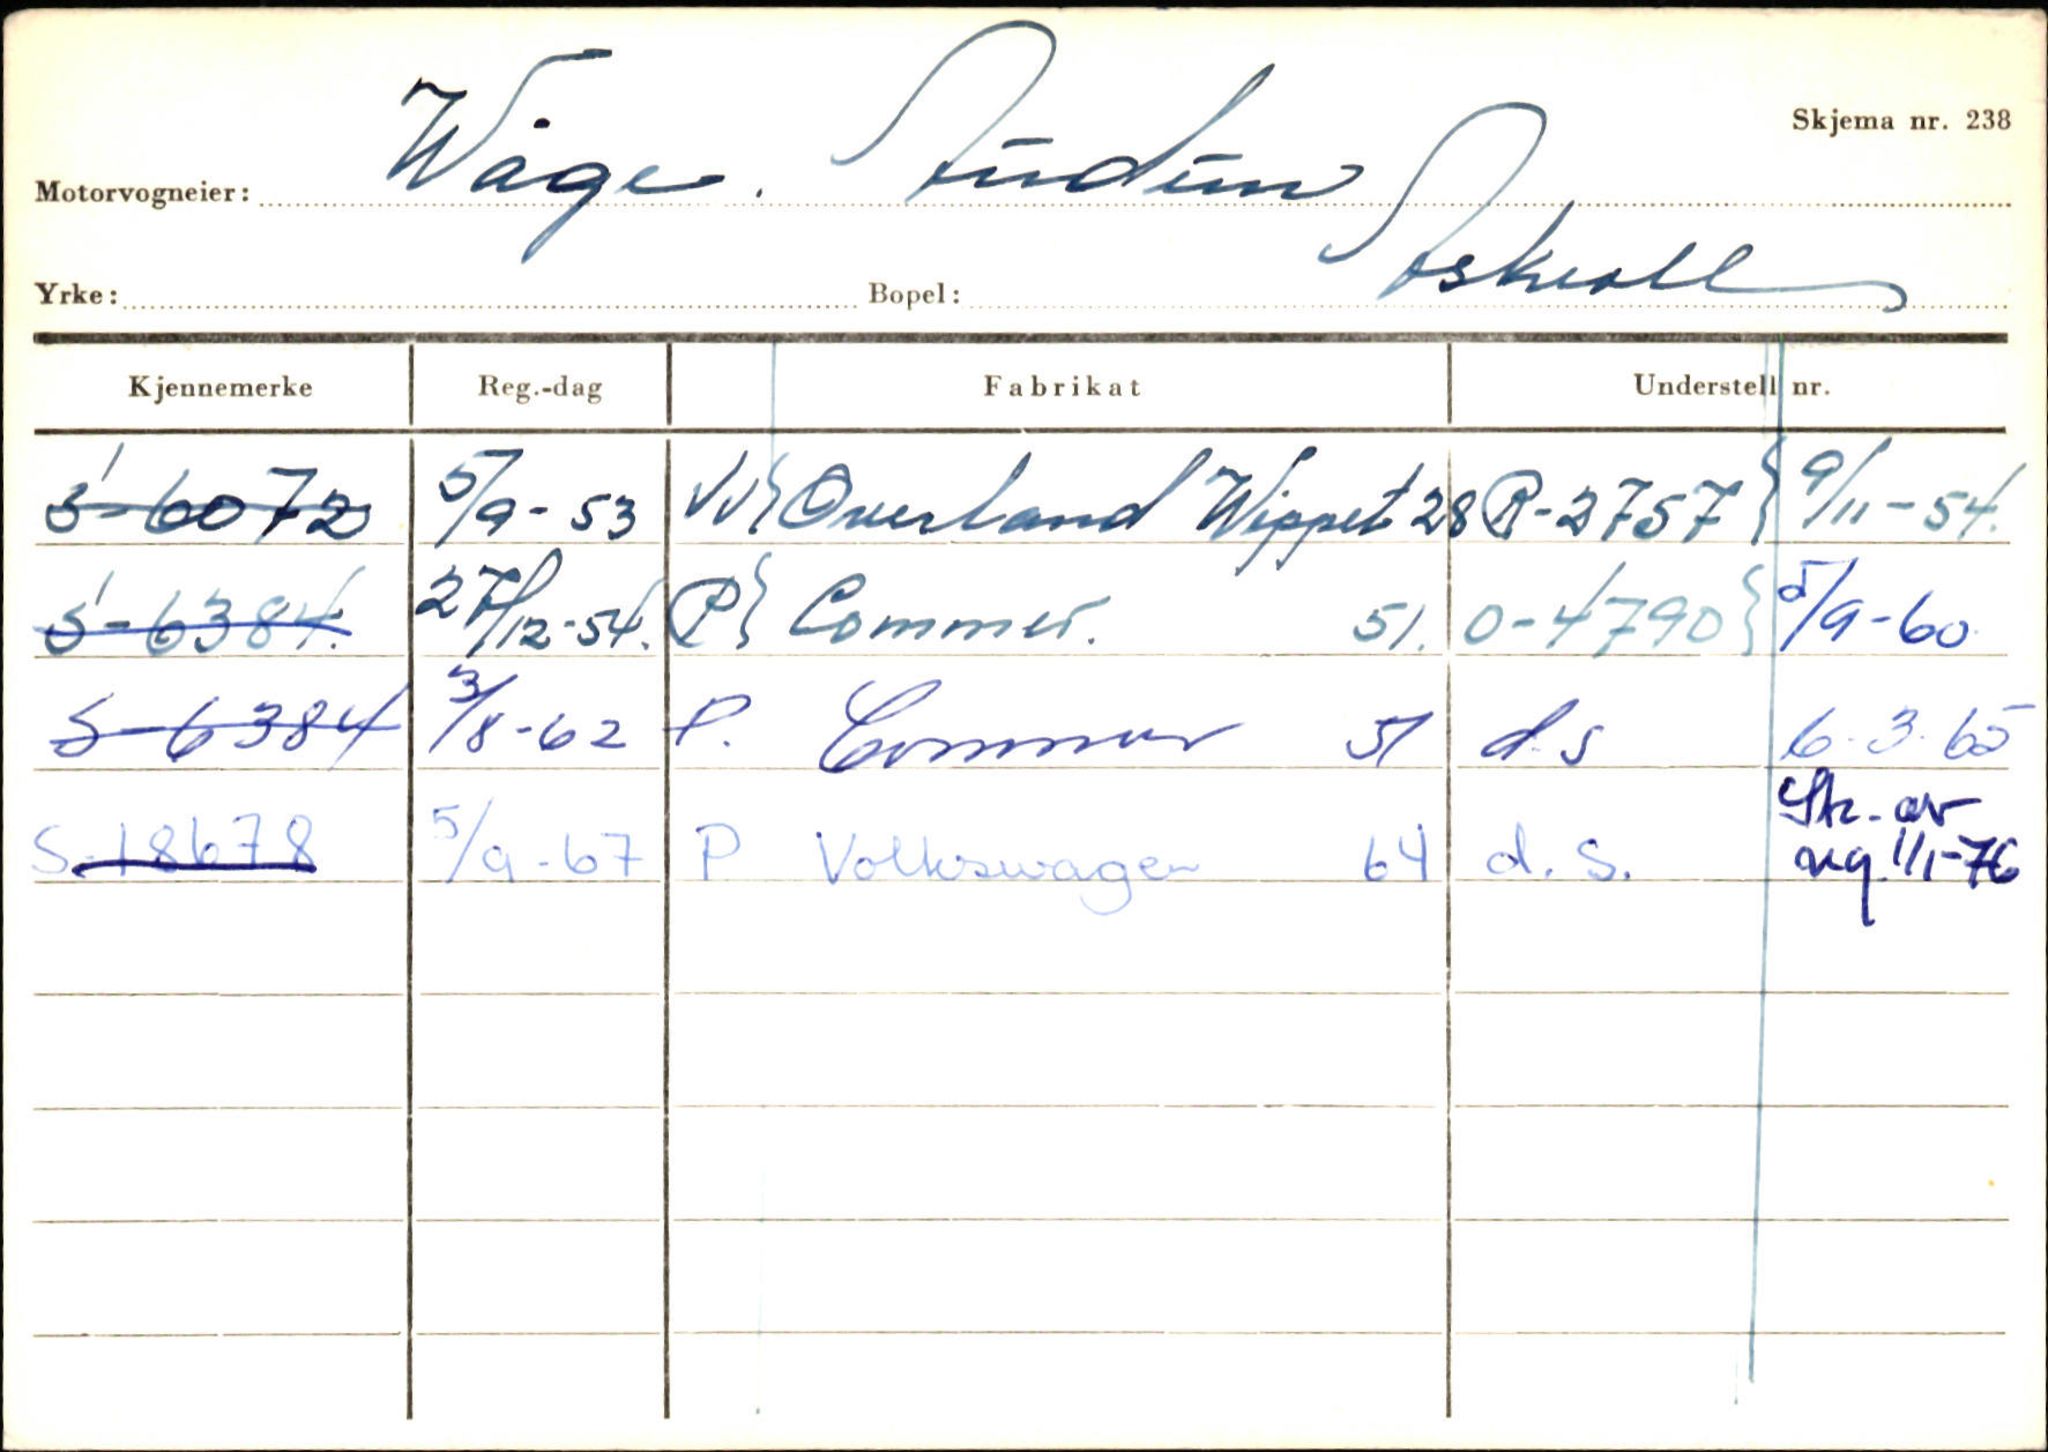 Skjema nr. 238
Motorvogneier: Wåge. Audun
Yrke: Bopel: Askvoll
Kjennemerke Reg.-dag Fabrikat Understell nr.
S-6072 5/9-53 Overland Wippet 28 R-2757 } 9/11-54.
S-6384. 27/12-54. P } Commer. 51. 0-4790 } 5/9-60
S-6384 3/8-62 P. Commer 51 d.s 6.3.65
S-18678 5/9-67 P Volkswagen 64 d.s. av
1/1-76